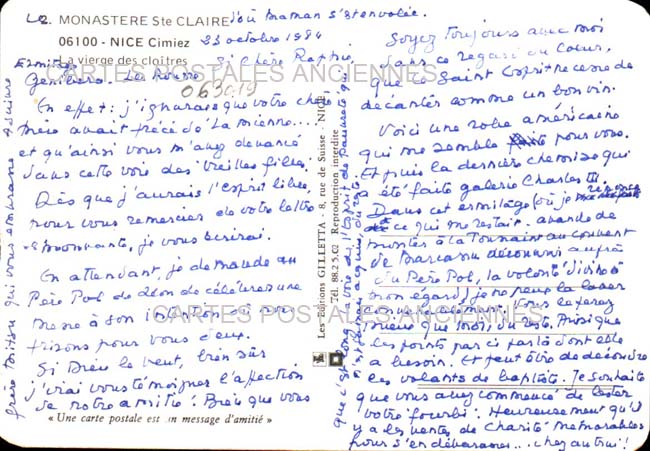 Le 2. MONASTERE Ste CLAIRE d'où Maman s'est envolée.
06100 - NICE Cimiez 23 octobre 1984
La vierge des cloîtres
Si chère
CARTES POSTALES ANCIENNES
063019
En effet: j'ignorais que votre chère
mère avait précédé la mienne...
et qu'ainsi vous m'avez devancé
dans cette voie des vieilles filles.
Dès que j'aurais l'esprit libre,
pour vous remercier de votre lettre
émouvante, je vous écrirai.
En attendant, je demande au
Père Pol de Léon de célébrer une
messe à son intention et nous
prierons pour vous deux.
Si Dieu le veut, bien sûr
j'irai vous témoigner l'affection
de notre amitié! Bien que vous
« Une carte postale est un message d'amitié »
Les Editions GILLETTA - 8, rue de Suisse - NICE
Tél. 88.2.5.02 Reproduction interdite
Soyez Toujours avec moi
dans ce regard du Cœur,
que le Saint Esprit ne cesse de
décanter comme un bon vin.
Voici une robe américaine
qui me semble pour vous.
Et puis la dernière chemise qui
a été faite galerie Charles III.
Dans cet ermitage où je renonce
à ce qui me restait. avant de
monter à la Tournaire au couvent
de découvrir auprès
du Père Pol, la volonté divine à
mon égard, je ne peux la laver
Vous le ferez
mieux que moi, du reste. Ainsi que
les points par ci par là dont elle
a besoin. Et peut être de découdre
les volants de baptiste. Je souhaite
que vous ayez commencé de
votre fourbi! Heureusement qu'il
y a les ventes de Charité Mémorables
pour s'en débarrasser... chez autrui!
CARTES POSTALES ANCIENNES
frère qui vous embrasse à suivre
que c'est long la voie de l'Esprit de Pauvreté qui
n'est jamais acquise, du reste.